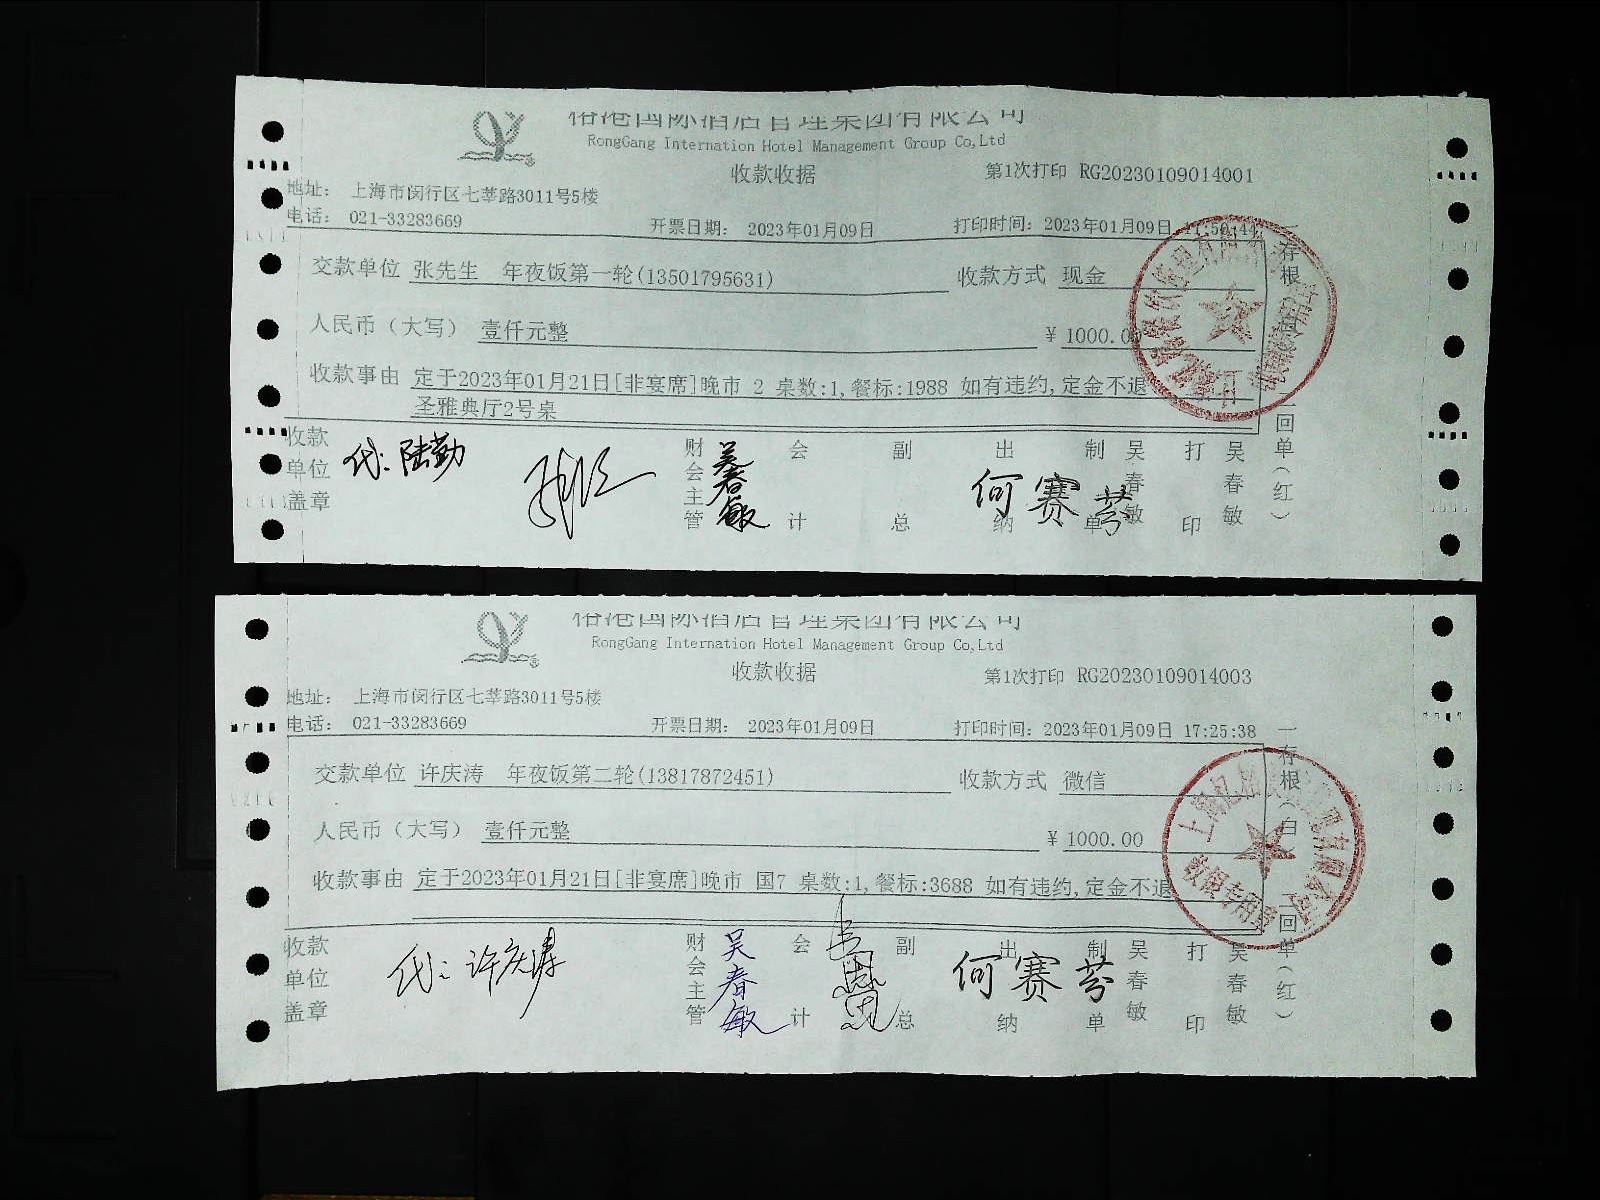 榕港国际酒店管理集团有限公司
RongGang Internation Hotel Management Group Co,Ltd
收款收据
第1次打印 RG20230109014001
地址： 上海市闵行区七莘路3011号5楼
电话： 021-33283669 开票日期： 2023年01月09日 打印时间：2023年01月09日
交款单位 张先生 年夜饭第一轮(13501795631) 收款方式 现金
人民币（大写） 壹仟元整 ￥1000.00
收款事由 定于2023年01月21日[非宴席]晚市 2 桌数:1,餐标:1988 如有违约,定金不退
圣雅典厅2号桌
收款单位盖章 代：陆勤 财会主管 吴春敏 会计 副总 出纳 何赛芬 制单 吴春敏 打印 吴春敏
一存根 二回单（红）
榕港国际酒店管理集团有限公司
RongGang Internation Hotel Management Group Co,Ltd
收款收据
第1次打印 RG20230109014003
地址： 上海市闵行区七莘路3011号5楼
电话： 021-33283669 开票日期： 2023年01月09日 打印时间：2023年01月09日 17:25:38
交款单位 许庆涛 年夜饭第二轮(13817872451) 收款方式 微信
人民币（大写） 壹仟元整 ￥1000.00
收款事由 定于2023年01月21日[非宴席]晚市 国7 桌数:1,餐标:3688 如有违约,定金不退
收款单位盖章 代：许庆涛 财会主管 吴春敏 会计 副总 出纳 何赛芬 制单 吴春敏 打印 吴春敏
一存根（白 二回单（红）